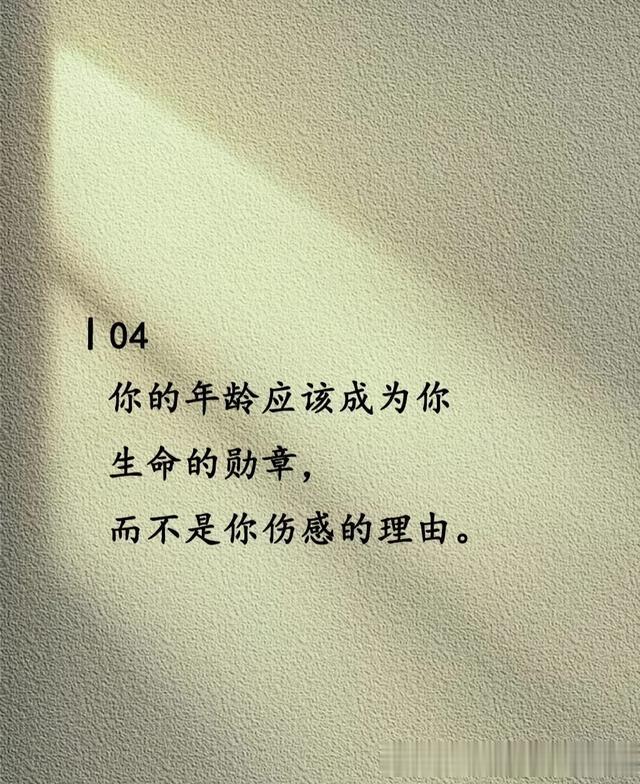 04
你的年龄应该成为你
生命的勋章，
而不是你伤感的理由。